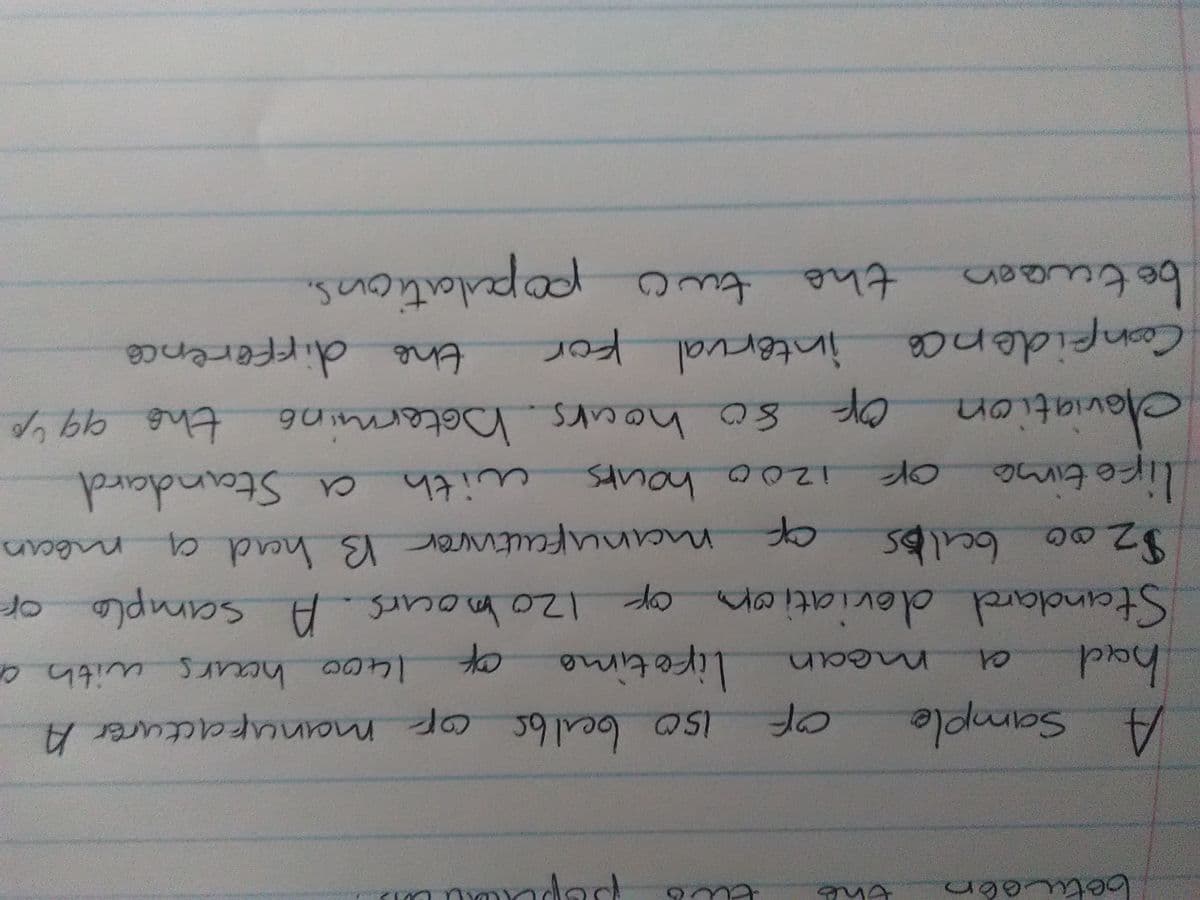 between the two
A sample of 150 bulbs of manufacturer A
had a mean lifetime of 1400 hours with a
Standard deviation of 120 hours. A sample of
$200 bulbs of manufacturer B had a mean
lifetime of 1200 hours with a Standard
deviation of 80 hours. Determine the 99%
Confidence interval for the difference
between the two populations.